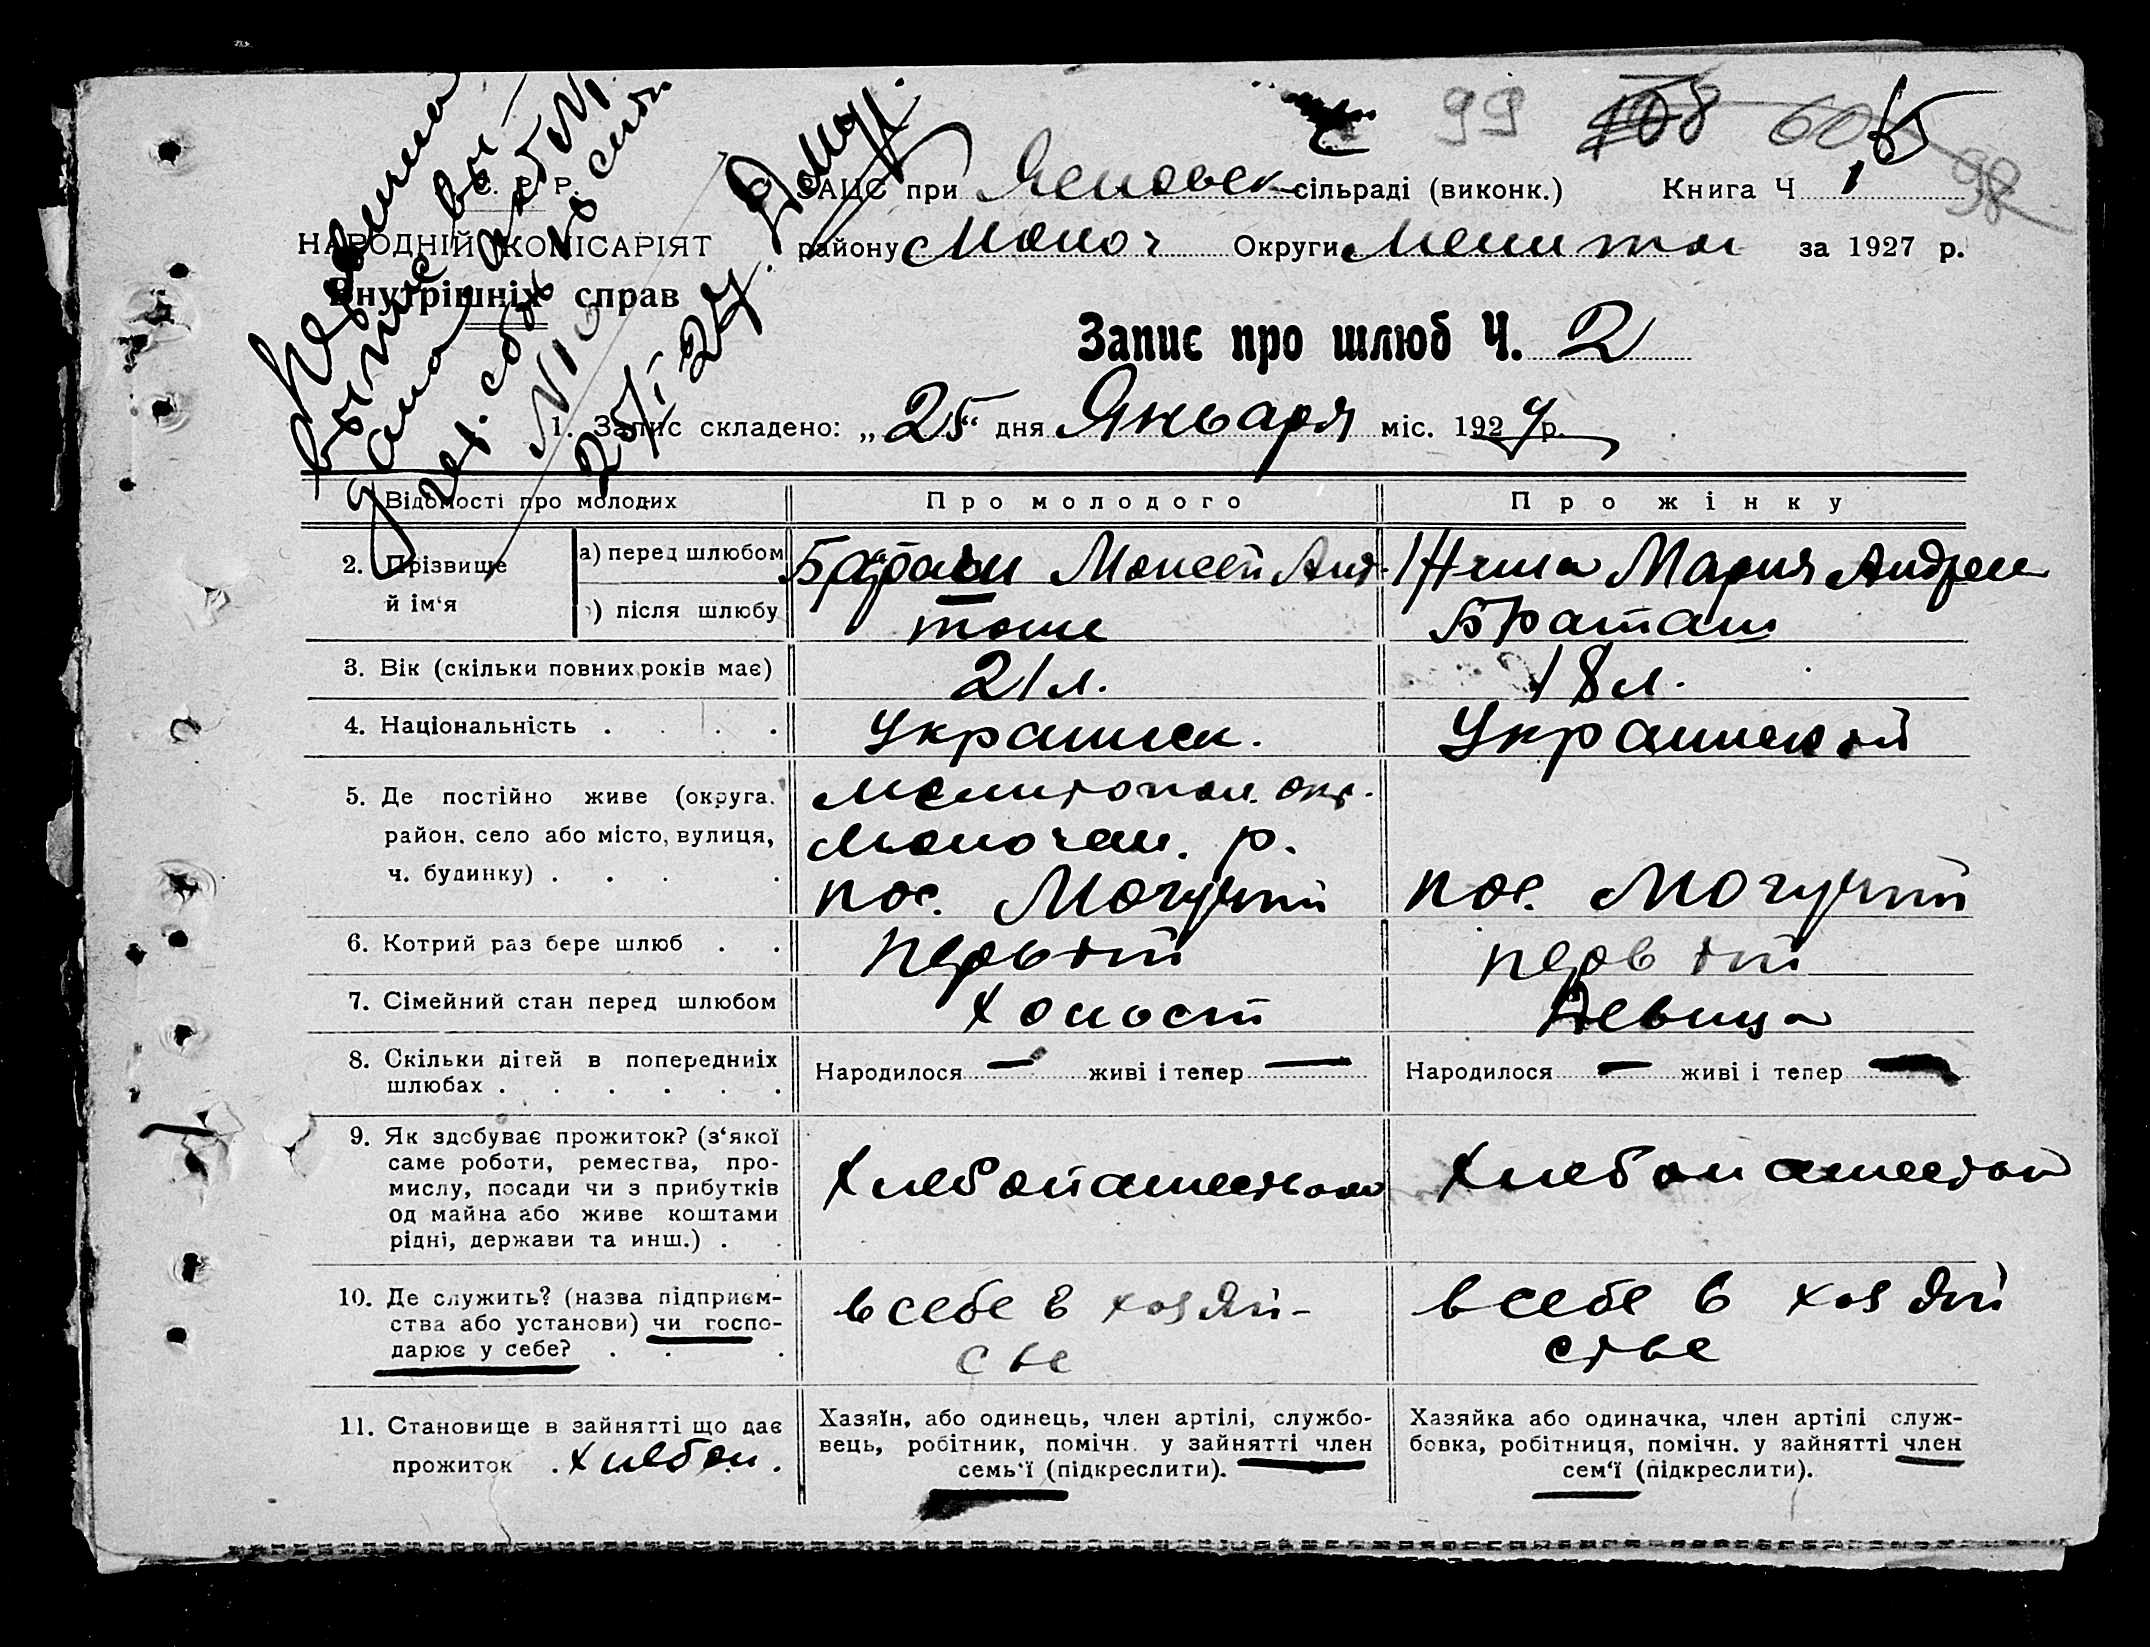 99 108 60 15
98
С. Р. Р.
ЗАЦС при Ясеновск сільраді (виконк.) Книга Ч 1
НАРОДНІЙ КОМІСАРІЯТ
району Молоч Округи Мелитоп за 1927 р.
Внутрішніх справ
Запис про шлюб Ч. 2
№ 10
25/I 27
1. Запис складено: „25“ дня Января міс. 1927 р.
Відомості про молодих Про молодого Про жінку
2. Прізвище й ім‘я
а) перед шлюбом Браташ Моисей Анд. Мария Андреев
б) після шлюбу тоже Браташ
3. Вік (скільки повних років має) 21 л. 18 л.
4. Національність . . . . Украинск. Украинский
5. Де постійно живе (округа, Мелитопол. окр.
район, село або місто, вулиця, Молочан. р.
ч. будинку) . . . . пос. Могучий пос. Могучий
6. Котрий раз бере шлюб . . первый первый
7. Сімейний стан перед шлюбом холост девица
8. Скільки дітей в попередніх
шлюбах . . . . . . Народилося — живі і тепер — Народилося — живі і тепер —
9. Як здобуває прожиток? (з‘якої
саме роботи, ремества, про-
мислу, посади чи з прибутків
од майна або живе коштами
рідні, держави та инш.) . .
Хлебопашеством Хлебопашеством
10. Де служить? (назва підприєм-
ства або установи) чи госпо-
дарює у себе? . . .
в себе в хозяй-
стве
в себе в хозяй
стве
11. Становище в зайнятті що дає
прожиток . хлебоп.
Хазяїн, або одинець, член артілі, службо-
вець, робітник, помічн. у зайнятті член
семь‘ї (підкреслити).
Хазяйка або одиначка, член артілі служ-
бовка, робітниця, помічн. у зайнятті член
сем‘ї (підкреслити).